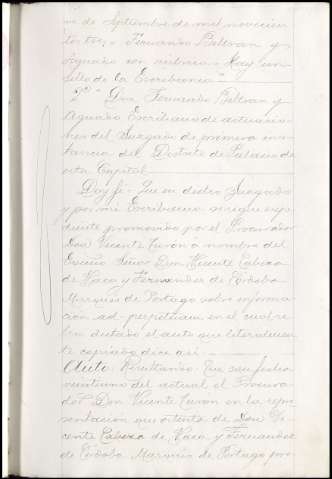 ro de Septiembre de mil novecien
tos tres = Fernando Beltran y
Aguado con rubrica = Hay un
sello de la Escribania =
2º = Don Fernando Beltran y
Aguado Escribano de actuacio
nes del Juzgado de primera ins
tancia del Distrito de Palacio de
esta Capital
Doy fe: Que en dicho Juzgado
y por mi Escribania se sigue expe
diente promovido por el Procurador
Don Vicente Turón a nombre del
Excmo Señor Don Vicente Cabeza
de Vaca y Fernandez de Cordoba
Marqués de Portago sobre informa
ción ad-perpetuam en el cual se
ha dictado el auto que literalmen
te copiado dice así:
Auto: Resultando: Que con fecha
veintiuno del actual el Procura
dor Don Vicente Turón en la repre
sentación que ostenta de Don Vi
cente Cabeza de Vaca y Fernandez
de Córdoba Marqués de Portago pro